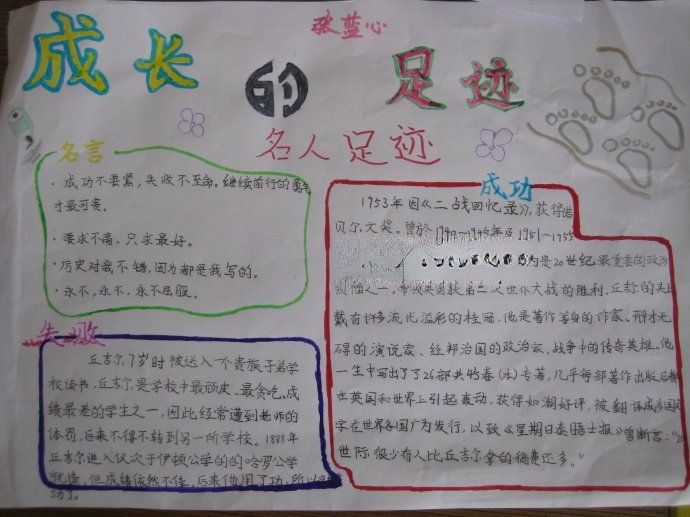 张蓝心
成长的足迹
名人足迹
名言
·成功不要紧,失败不至命。继续前行的勇气
才最可贵。
·要求不高,只求最好。
·历史对我不错,因为都是我写的。
·永不,永不,永不屈服。
失败
丘吉尔7岁时被送入一个贵族子弟学
校读书,丘吉尔是学校中最顽皮、最贪吃,成
绩最差的学生之一,因此经常遭到老师的
体罚,后来不得不转到另一所学校。1888年
丘吉尔进入仅次于伊顿公学的的哈罗公学
就读,但成绩依然不佳,后来他用了功,所以
功了。
成功
1953年因《二战回忆录》,获得诺
贝尔文奖。曾於1940~1945年及1951~1955
为是20世纪最重要的政治
领袖之一,带领英国获第二次世界大战的胜利,丘吉尔的头上
戴有许多流光溢彩的桂冠,他是著作等身的作家、辩才无
碍的演说家、经邦治国的政治家、战争中的传奇英雄,他
一生中写出了了26部共45卷(本)专著,几乎每部著作出版后都
在英国和世界上引起轰动,获得如潮好评,被翻译成多国
字在世界各国广为发行,以致《星期日泰晤士报》曾断言:"20
世际,很少有人比丘吉尔拿的稿费还多。"